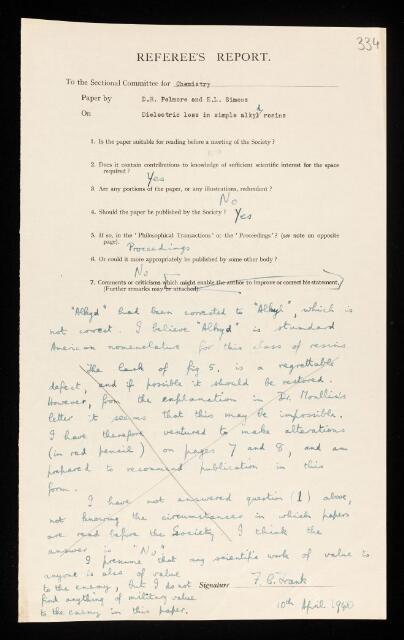 334
REFEREE'S REPORT.
To the Sectional Committee for Chemistry
Paper by D.R. Pelmore and E.L. Simons
On Dielectric loss in simple alkyd resins
1. Is the paper suitable for reading before a meeting of the Society?
2. Does it contain contributions to knowledge of sufficient scientific interest for the space
required? Yes
3. Are any portions of the paper, or any illustrations, redundant?
No
4. Should the paper be published by the Society? Yes
5. If so, in the 'Philosophical Transactions' or the 'Proceedings'? (see note on opposite
page). Proceedings
6. Or could it more appropriately be published by some other body?
No
7. Comments or criticisms which might enable the author to improve or correct his statement.
(Further remarks may be attached).
"Alkyd" had been corrected to "Alkyl", which is
not correct. I believe "Alkyd" is standard
American nomenclature for this class of resins
The lack of fig 5. is a regrettable
defect, and if possible it should be restored.
However, from the explanation in Dr. Moullin's
letter it seems that this may be impossible.
I have therefore ventured to make alterations
(in red pencil) on pages 7 and 8, and am
prepared to recommend publication in this
form.
I have not answered question (1) above,
not knowing the circumstances in which papers
are read before the Society. I think the
answer is "No"
I presume that any scientific work of value to
anyone is also of value
to the enemy, but I do not
find anything of military value
to the enemy in this paper.
Signature F. C. Frank
10th April 1940